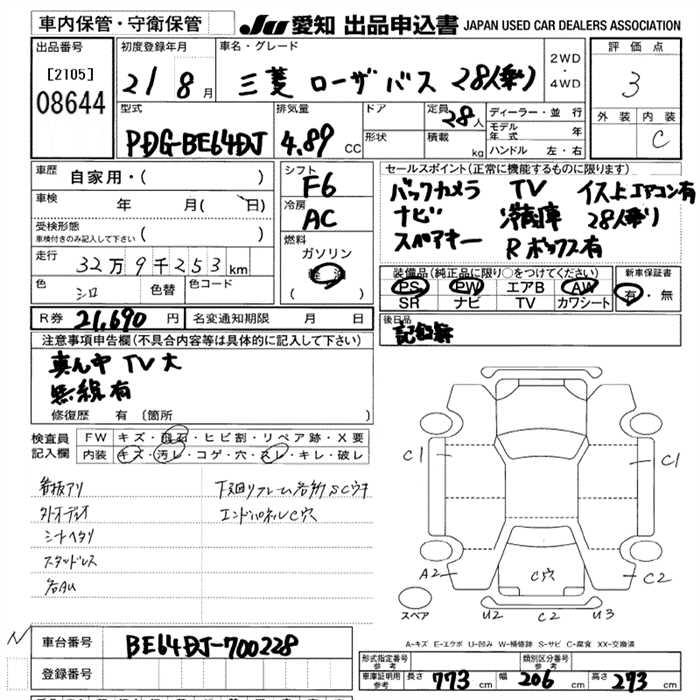 車内保管・守衛保管 JU 愛知 出品申込書 JAPAN USED CAR DEALERS ASSOCIATION
出品番号 初度登録年月 車名・グレード 2WD・4WD 評価点
[2105] 08644 21 8月 三菱 ローザバス 28人(乗り) 3
型式 排気量 ドア 定員 28人 ディーラー・並行 外装 内装
PDG-BE64DJ 4.89 CC 形状 積載 kg モデル年式 年 C
ハンドル 左・右
車歴 自家用・( ) シフト F6 セールスポイント(正常に機能するものに限ります)
車検 年 月( 日) 冷房 AC バックカメラ TV イス上エアコン有
受検形態 ナビ 冷蔵庫 28人乗り
車検付きのみ記入して下さい ( ) スペアキー Rボックス有
走行 32万9千253km 燃料 ガソリン ( )
装備品(純正品に限り○をつけてください) 新車保証書
色 シロ 色替 色コード PS PW エアB AW 有・無
SR ナビ TV カワシート
R券 21,690円 名変通知期限 月 日 後日品
記録簿
注意事項申告欄(不具合内容等は具体的に記入して下さい)
真ん中 TV 大
無線有
修復歴 有 (箇所 )
検査員記入欄 FW キズ・飛石・ヒビ割・リペア跡・X要
内装 キズ・汚レ・コゲ・穴・スレ・キレ・破レ
看板アリ
外オーディオ エンドパネルC穴
シートヘタリ
スタッドレス
C1 C1
A2 C穴 C2
スペア U2 C2 U3
A-キズ E-エクボ U-凹み W-補修跡 S-サビ C-腐食 XX-交換済
車台番号 BE64DJ-700228
登録番号
形式指定番号 参考 類別区分番号 参考
車庫証明用 参考 長さ 773cm 幅 206cm 高さ 273cm